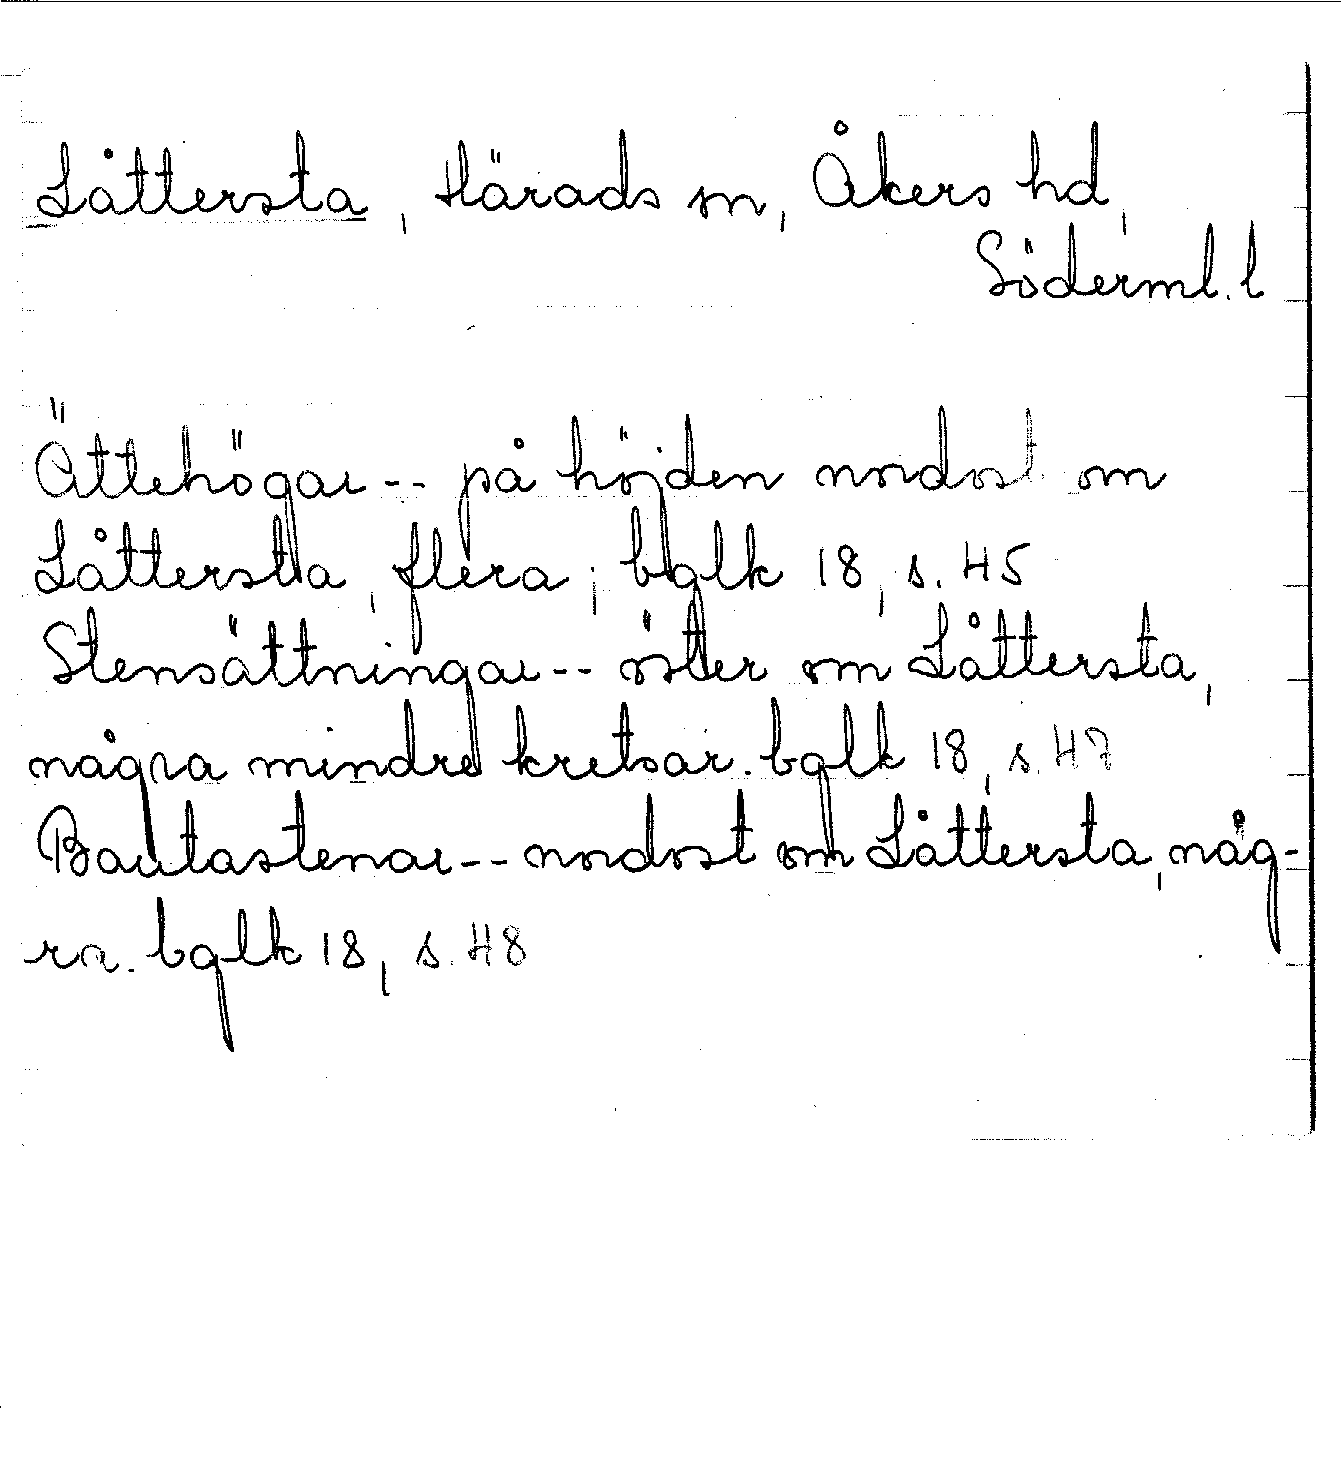 Låttersta, Härads sn, Åkers hd,
Söderml. l
Ättehögar -- på höjden nordost om
Låttersta, flera; bglk 18, s. 45
Stensättningar -- öster om Låttersta,
några mindre kretsar. bglk 18, s. 47
Bautastenar -- nordost om Låttersta, någ-
ra. bglk 18, s. 48